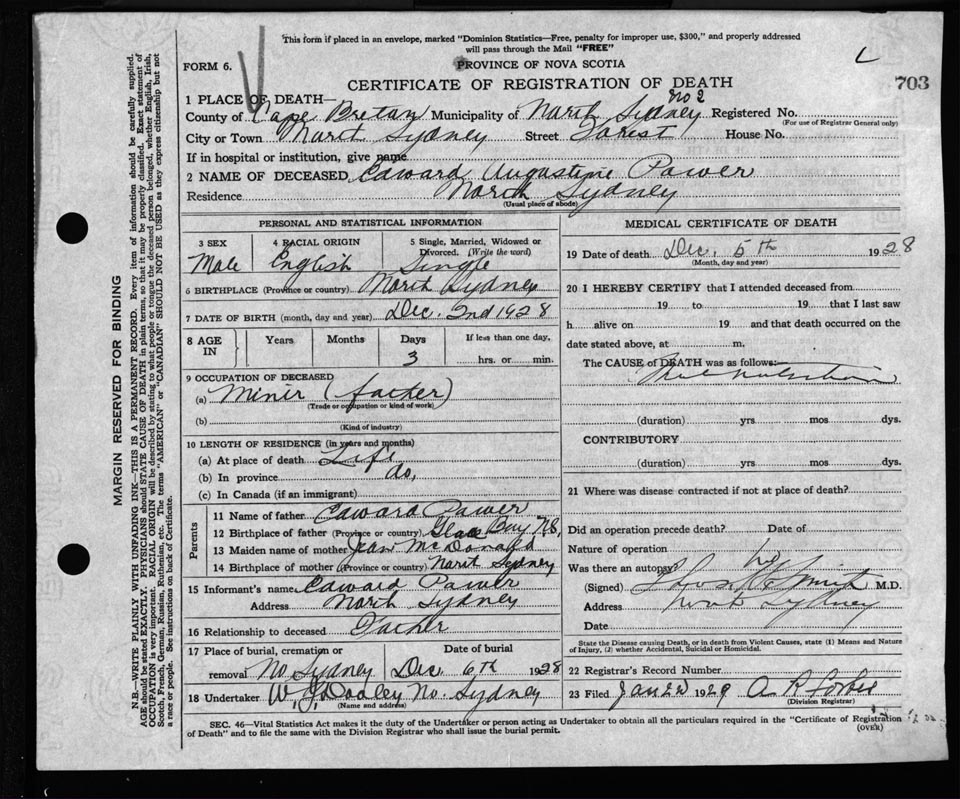 This form if placed in an envelope, marked "Dominion Statistics—Free, penalty for improper use, $300," and properly addressed
will pass through the Mail "FREE"
FORM 6. PROVINCE OF NOVA SCOTIA
CERTIFICATE OF REGISTRATION OF DEATH 703
1 PLACE OF DEATH—
County of Cape Breton Municipality of North Sydney No 2 Registered No.
(For use of Registrar General only)
City or Town North Sydney Street Forest House No.
If in hospital or institution, give name
2 NAME OF DECEASED Edward Augastine Power
Residence North Sydney
(Usual place of abode)
PERSONAL AND STATISTICAL INFORMATION
3 SEX 4 RACIAL ORIGIN 5 Single, Married, Widowed or Divorced. (Write the word)
Male English Single
6 BIRTHPLACE (Province or country) North Sydney
7 DATE OF BIRTH (month, day and year) Dec. 2nd 1928
8 AGE IN Years Months Days If less than one day,
3 hrs. or min.
9 OCCUPATION OF DECEASED
(a) Miner (father)
(Trade or occupation or kind of work)
(b)
(Kind of industry)
10 LENGTH OF RESIDENCE (in years and months)
(a) At place of death Life
(b) In province do,
(c) In Canada (if an immigrant)
Parents
11 Name of father Edward Power
12 Birthplace of father (Province or country) Glace Bay N.S,
13 Maiden name of mother Jean McDonald
14 Birthplace of mother (Province or country) North Sydney
15 Informant's name Edward Power
Address North Sydney
16 Relationship to deceased Father
17 Place of burial, cremation or removal Date of burial
No Sydney Dec 6th 1928
18 Undertaker W, J, Dooley No. Sydney
(Name and address)
MEDICAL CERTIFICATE OF DEATH
19 Date of death Dec, 5th 1928
(Month, day and year)
20 I HEREBY CERTIFY that I attended deceased from
19 to 19 that I last saw
h alive on 19 and that death occurred on the
date stated above, at m.
The CAUSE of DEATH was as follows:
(duration) yrs mos dys.
CONTRIBUTORY
(duration) yrs mos dys.
21 Where was disease contracted if not at place of death?
Did an operation precede death? Date of
Nature of operation
Was there an autopsy? No
(Signed) M.D.
Address North Sydney
Date
State the Disease causing Death, or in death from Violent Causes, state (1) Means and Nature
of Injury, (2) whether Accidental, Suicidal or Homicidal.
22 Registrar's Record Number
23 Filed Jan 22 1929 A R Forbes
(Division Registrar)
SEC. 46—Vital Statistics Act makes it the duty of the Undertaker or person acting as Undertaker to obtain all the particulars required in the "Certificate of Registration
of Death" and to file the same with the Division Registrar who shall issue the burial permit. (OVER)
MARGIN RESERVED FOR BINDING
N.B.—WRITE PLAINLY WITH UNFADING INK—THIS IS A PERMANENT RECORD. Every item of information should be carefully supplied.
AGE should be stated EXACTLY. PHYSICIANS should STATE CAUSE OF DEATH in plain terms, so that it may be properly classified. Exact statement of
OCCUPATION is very important. RACIAL ORIGIN will be described by stating to what people or tongue the deceased person belonged, whether English, Irish,
Scotch, French, German, Russian, Ruthenian, etc. The terms "AMERICAN" or "CANADIAN" SHOULD NOT BE USED as they express citizenship but not
a race or people. See instructions on back of Certificate.